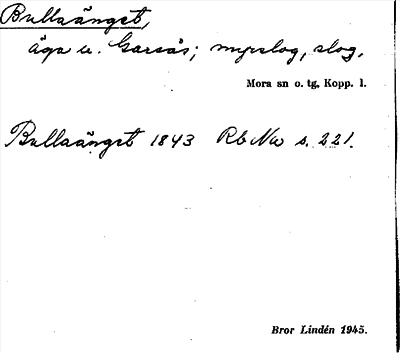 Bullaänget,
äga u. Garsås; myrslog, slog.
Mora sn o. tg, Kopp. l.
Bullaänget 1843 Rb Nw s. 221.
Bror Lindén 1945.